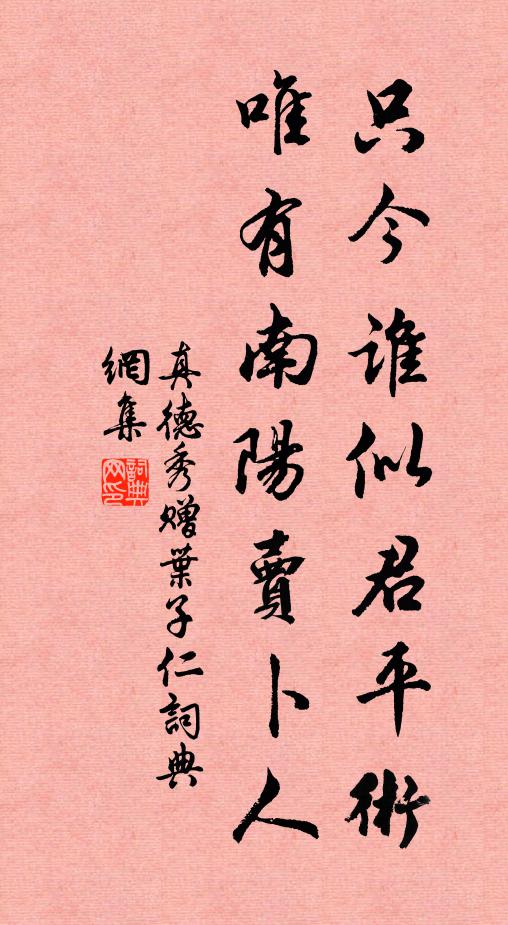 只今誰似君平術
唯有南陽賣卜人
真德秀贈葉子仁詞典
網集
詞典
网印